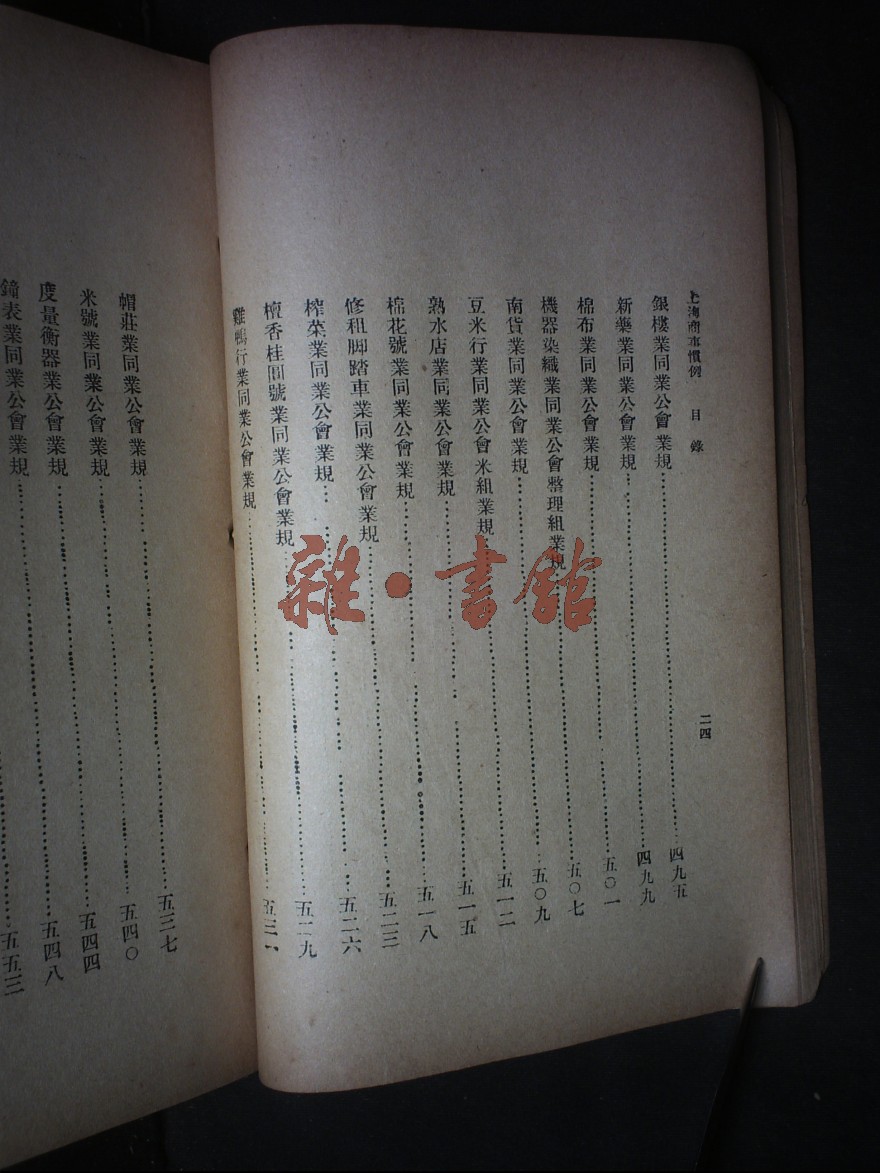 上海商事慣例 目錄 二四
銀樓業同業公會業規……四九五
新藥業同業公會業規……四九九
棉布業同業公會業規……五〇一
機器染織業同業公會整理組業規……五〇七
南貨業同業公會業規……五〇九
豆米行業同業公會米組業規……五一二
熟水店業同業公會業規……五一五
棉花號業同業公會業規……五一八
修租脚踏車業同業公會業規……五二三
榨菜業同業公會業規……五二六
檀香桂圓號業同業公會業規……五二九
雞鴨行業同業公會業規……五三一
帽莊業同業公會業規……五三七
米號業同業公會業規……五四〇
度量衡器業公會業規……五四四
鐘表業同業公會業規……五四八
五五三
雜·書館